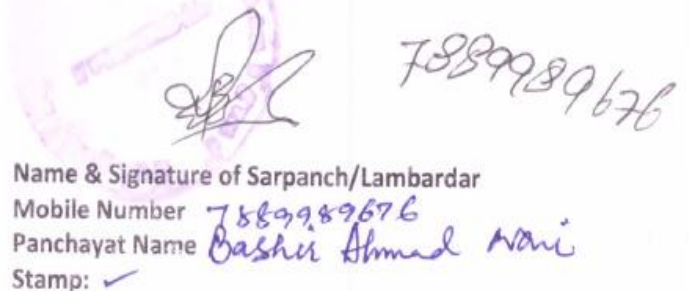 7889989676
Name & Signature of Sarpanch/Lambardar
Mobile Number 7889989676
Panchayat Name Bashir Ahmad
Stamp: ✓